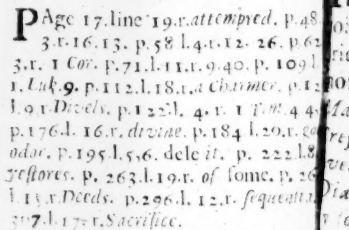 PAge 17. line 19. r. attempred. p. 48.
3. r. 16. 13. p. 58 l. 4. r. 12. 26. p. 62
3. r. 1 Cor. p. 71. l. 11. r. 9. 40. p. 109 l.
r. Luk. 9. p. 112. l. 18. r. a Charmer. p. 12
l. 9 r. Divels. p. 122. l. 4. r. 1 Tim. 4 4.
p. 176. l. 16. r. divine. p. 184 l. 20. r.
odor. p. 195 l. 5, 6. dele it. p. 222. l. 8
restores. p. 263. l. 19. r. of some. p. 26
l. 15 r. Deeds. p. 296. l. 12. r. sequentia
307. l. 17. r. Sacrifice.